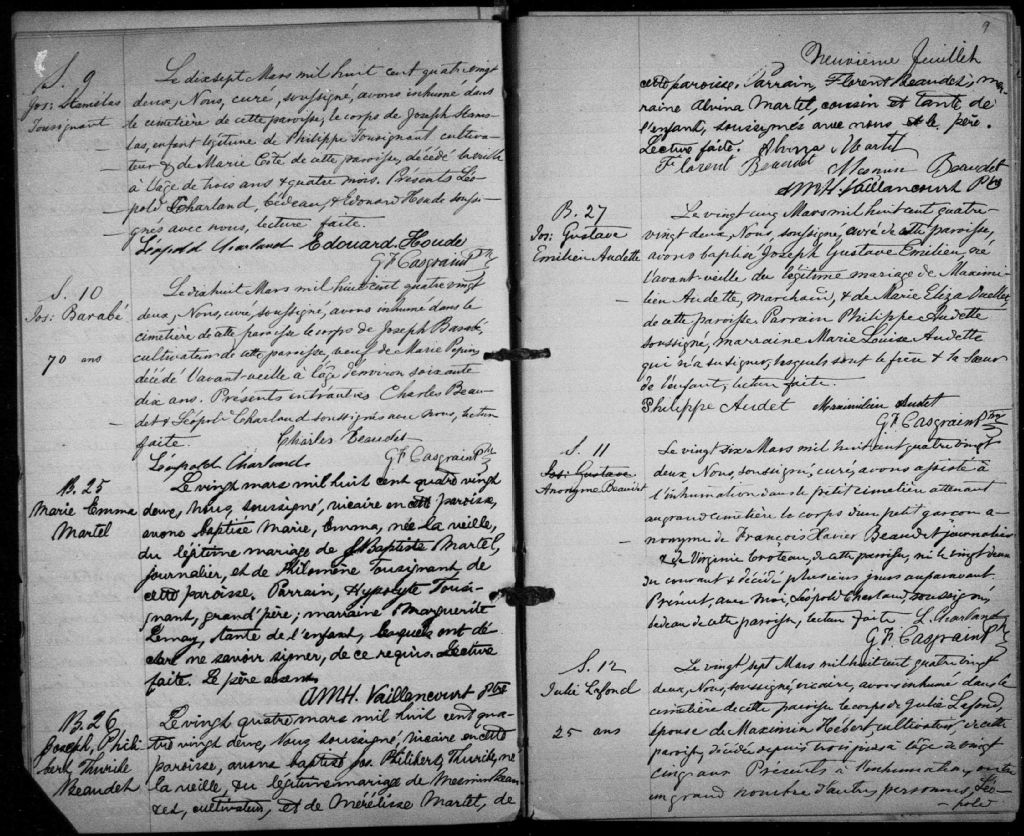 S. 9
Jos: Stanislas
Tousignant
Le dixsept Mars mil huit cent quatre vingt
deux, Nous, curé, soussigné, avons inhumé dans
le cimetière de cette paroisse, le corps de Joseph Stanis-
las, enfant légitime de Philippe Tousignant cultiva-
teur & de Marie Côté de cette paroisse, décédé la veille
à l'âge de trois ans & quatre mois. Présents Léo-
pold Charland bédeau, & Edouard Houde soussi-
gnés avec nous, lecture faite.
Léopold Charland Edouard Houde
G F Casgrain Ptre
S. 10
Jos: Barabé
70 ans
Le dix huit Mars mil huit cent quatre vingt
deux, Nous, curé, soussigné, avons inhumé dans le
cimetière de cette paroisse le corps de Joseph Barabé,
cultivateur de cette paroisse, veuf de Marie Pepin,
décédé l'avant-veille à l'âge d'environ soixante
dix ans. Présents entr'autres Charles Beau-
det & Léopold Charland soussignés avec Nous, lecture
faite. Charles Beaudet
Léopold Charland G F Casgrain Ptre
B. 25
Marie Emma
Martel
Le vingt mars mil huit cent quatre vingt
deux, Nous soussigné, vicaire en cette paroisse,
avons baptisé Marie, Emma, née la veille,
du légitime mariage de J. Baptiste Martel,
journalier, et de Philomène Tousignant, de
cette paroisse. Parrain, Hypolyte Tousi-
gnant, grand'père; marraine Marguerite
Lemay, tante de l'enfant, lesquels ont dé-
claré ne savoir signer, de ce requis. Lecture
faite. Le père absent.
AMH. Vaillancourt Ptre
B. 26
Joseph, Phili-
bert Thuribe
Beaudet
Le vingt quatre mars mil huit cent qua-
tre vingt deux, Nous soussigné, vicaire en cette
paroisse, avons baptisé Jos. Philibert, Thuribe, né
la veille, du légitime mariage de Mesmin Beau-
det, cultivateur, et de Mérélisse Martel, de
9
Neuvième feuillet
cette paroisse. Parrain, Florent Beaudet, mar-
raine Alvina Martel, cousin et tante de
l'enfant, soussignés avec nous et le père.
Lecture faite. Alvina Martel
Florent Beaudet Mesmin Beaudet
AMH. Vaillancourt Ptre
B. 27
Jos: Gustave
Emilien Audette
Le vingt cinq Mars mil huit cent quatre-
vingt deux, Nous, soussigné, curé de cette paroisse,
avons baptisé Joseph Gustave Emilien, né
l'avant veille du légitime mariage de Maximi-
lien Audette, marchand, & de Marie Eliza Ouellet
de cette paroisse Parrain Philippe Audette
soussigné, marraine Marie Louise Audette
qui n'a su signer, lesquels sont le frère & la sœur
de l'enfant, lecture faite.
Philippe Audet Maximilien Audet
G F Casgrain Ptre
S. 11
Jos: Gustave
Anonyme Beaudet
Le vingt six Mars mil huit cent quatre vingt
deux, Nous, soussigné, curé, avons assisté à
l'inhumation dans le petit cimetière attenant
au grand cimetière le corps d'un petit garçon a-
nonyme de François Xavier Beaudet journalier
& de Virginie Croteau, de cette paroisse, né le vingt deux
du courant & décédé plusieurs jours auparavant.
Présent, avec moi, Léopold Charland, soussigné,
bedeau de cette paroisse, lecture faite L. Charland
G F Casgrain Ptre
S. 12
Julie Lafond
25 ans
Le vingt sept Mars mil huit cent quatre vingt
deux, Nous, soussigné, vicaire, avons inhumé dans le
cimetière de cette paroisse le corps de Julie Lafond,
épouse de Maximin Hébert, cultivateur, de cette
paroisse, décédée depuis trois jours à l'âge de vingt
cinq ans Présents à l'inhumation, outre
un grand nombre d'autres personnes, Léo-
pold